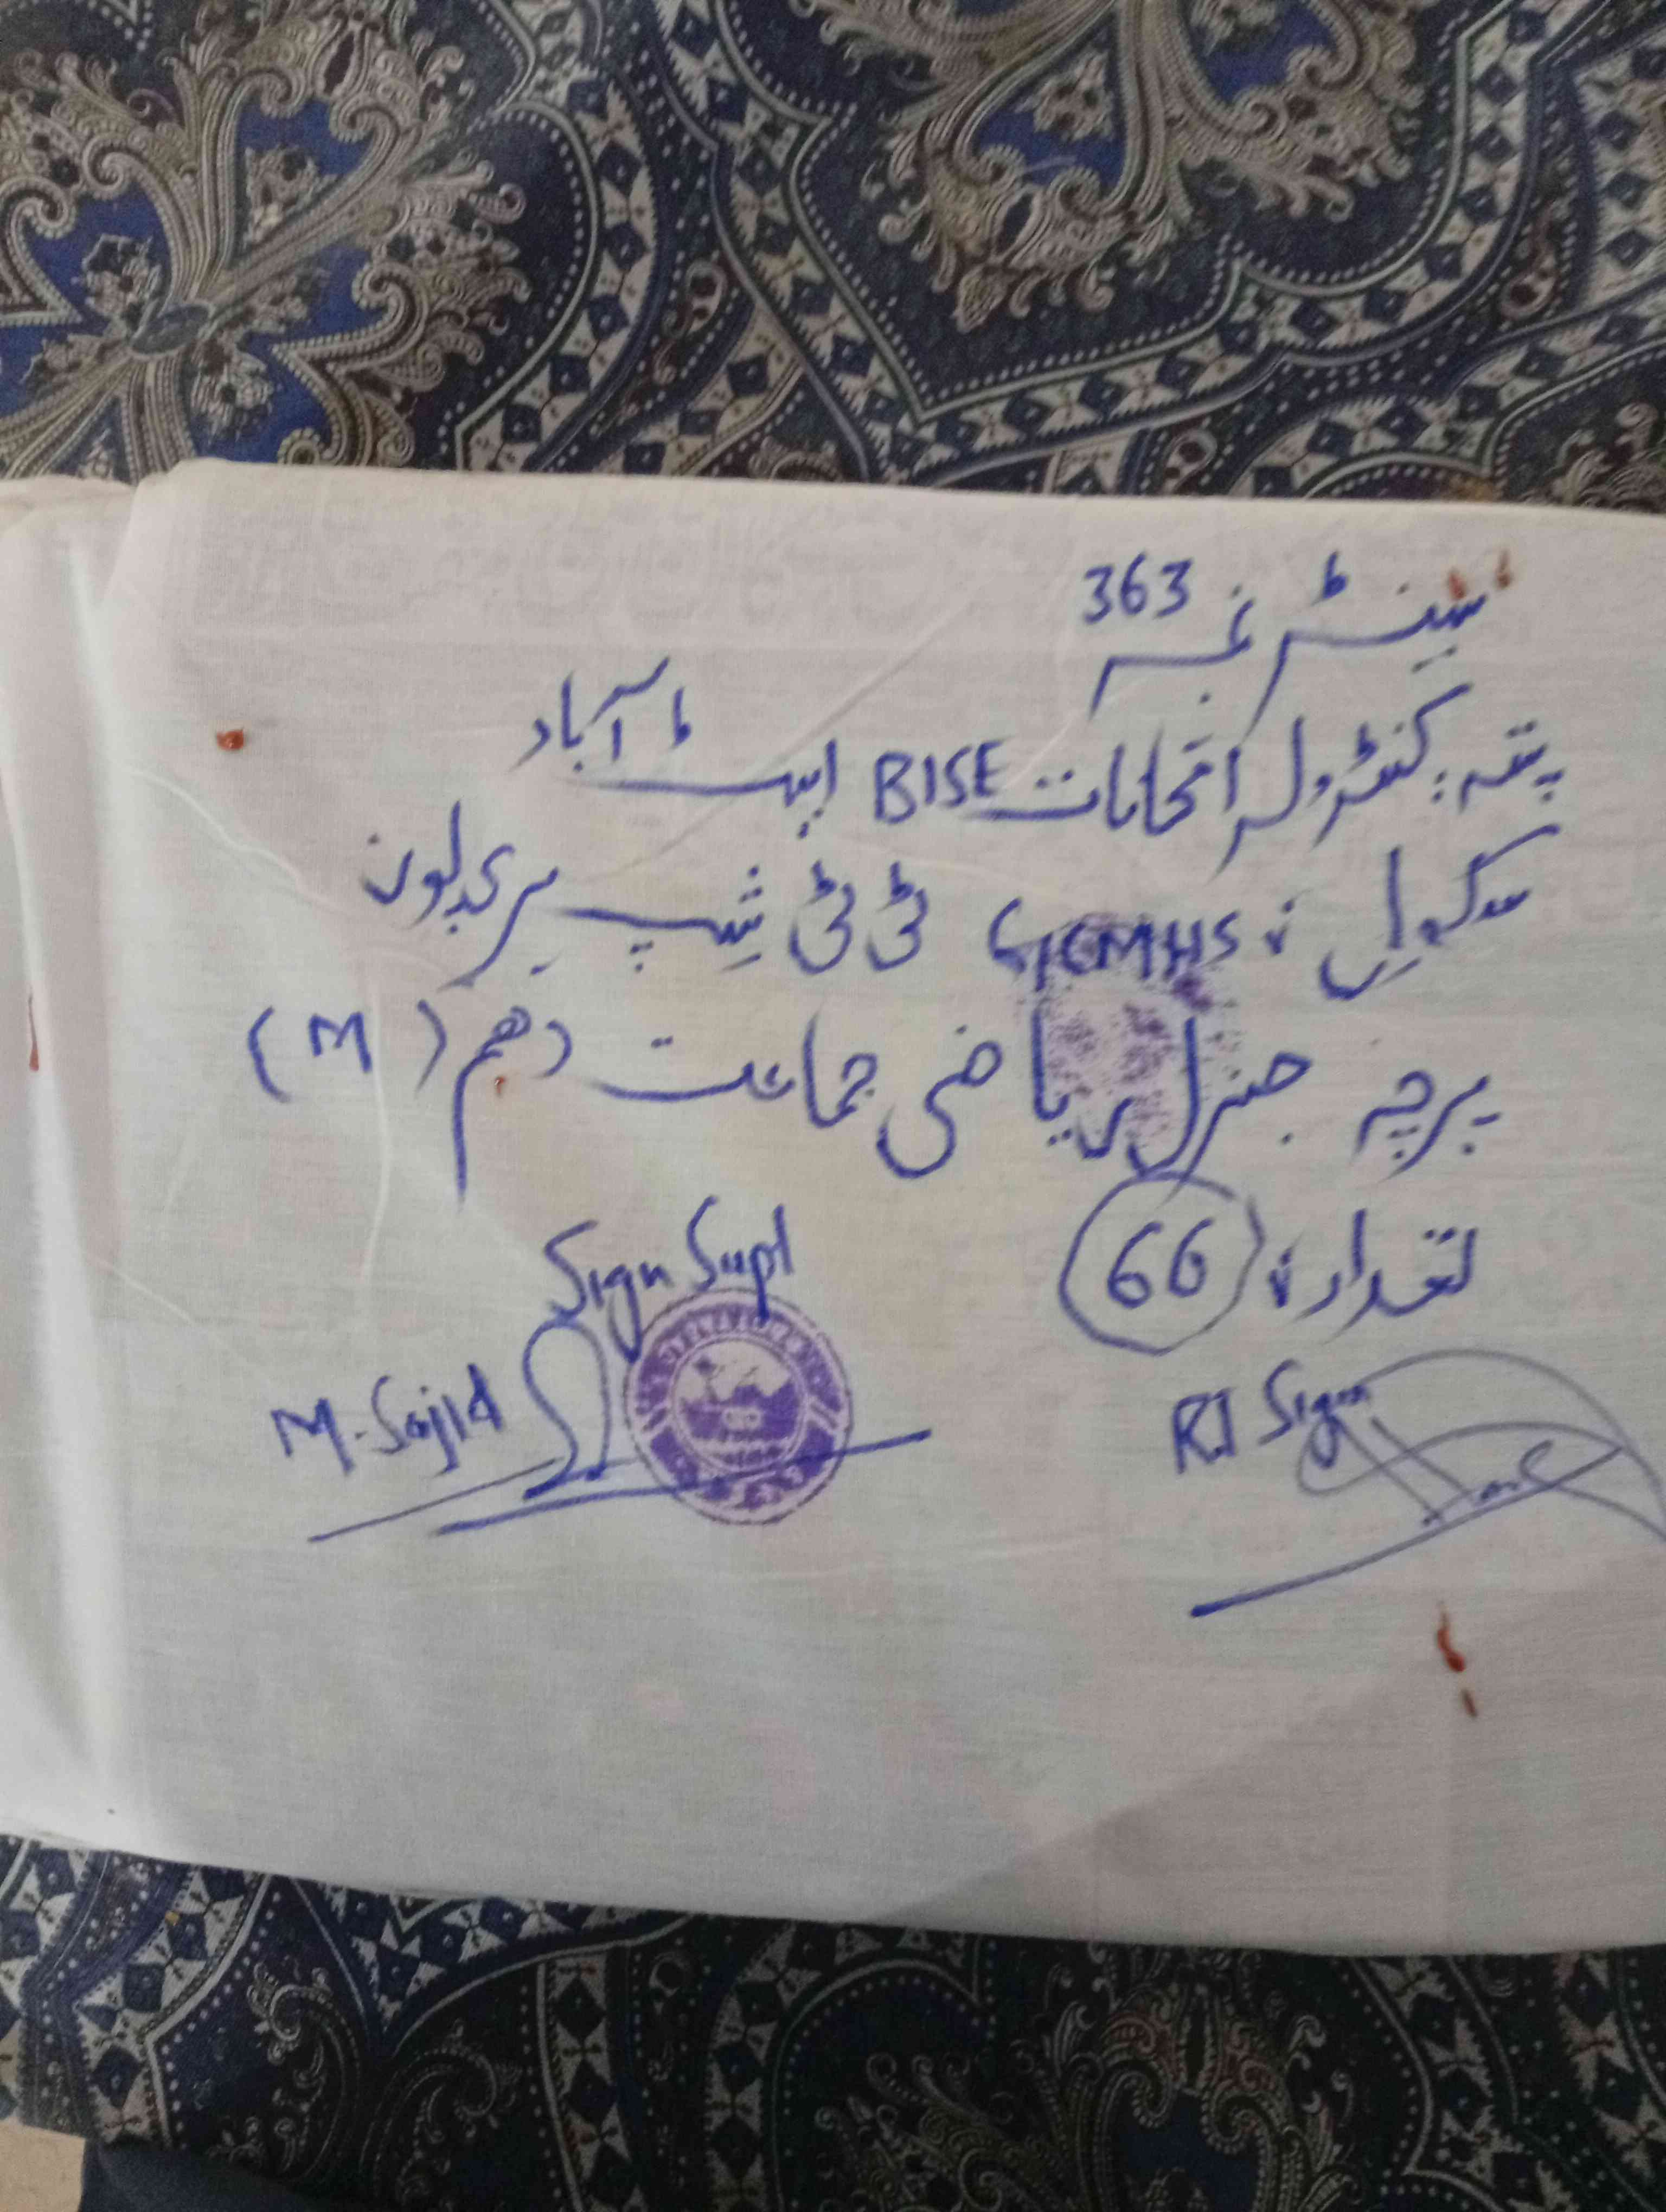 سینٹر نمبر 363
پتہ: کنٹرولر امتحانات BISE ایبٹ آباد
سکول: GCMHS ٹی ٹی شپ
پرچہ جنرل ریاضی جماعت دھم (M)
تعداد: 66
Sign Supt
M. Sajid
RI Sign